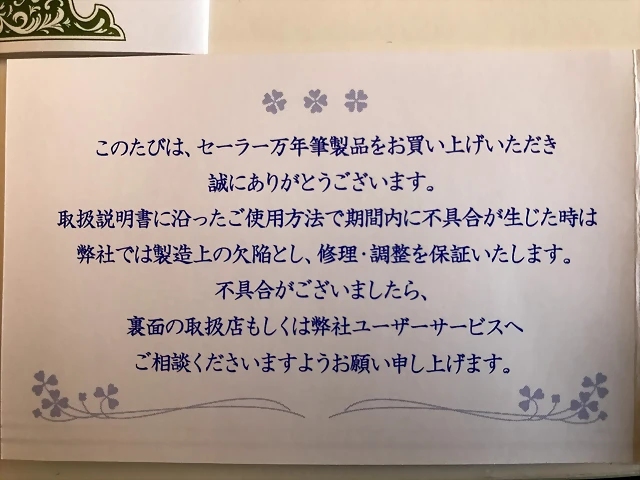 このたびは、セーラー万年筆製品をお買い上げいただき
誠にありがとうございます。
取扱説明書に沿ったご使用方法で期間内に不具合が生じた時は
弊社では製造上の欠陥とし、修理・調整を保証いたします。
不具合がございましたら、
裏面の取扱店もしくは弊社ユーザーサービスへ
ご相談くださいますようお願い申し上げます。